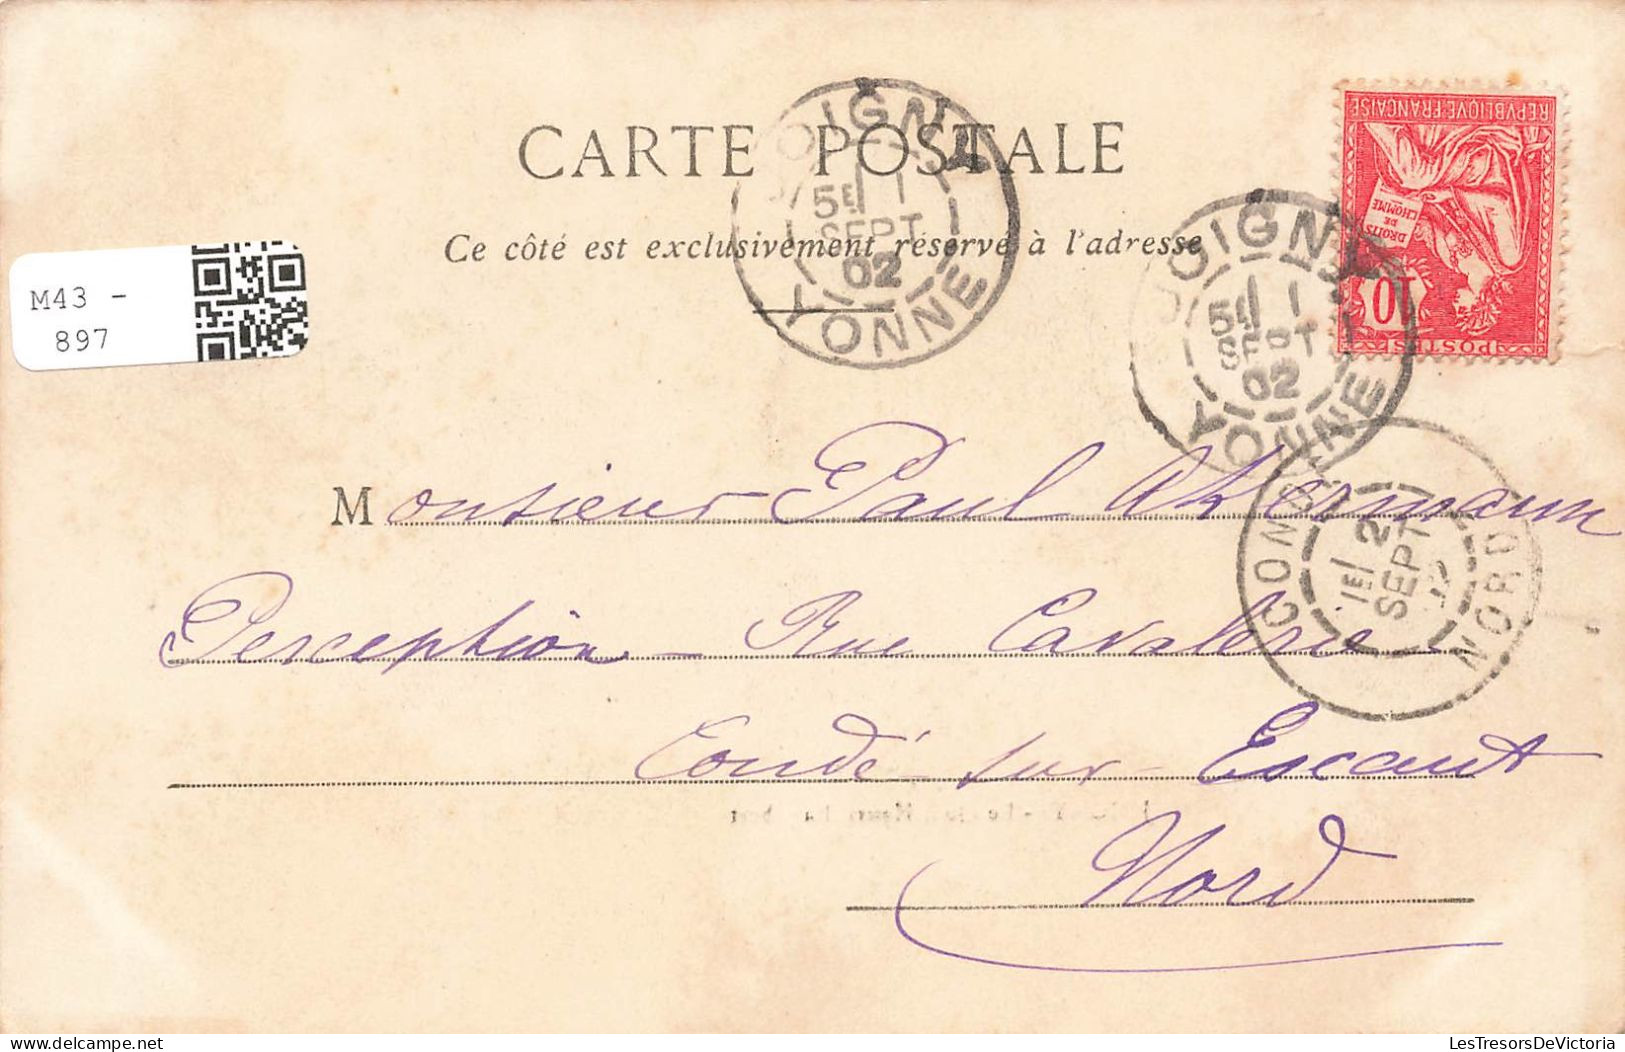 CARTE POSTALE
Ce côté est exclusivement réservé à l'adresse
M43 -
897
JOIGNY
5E 1
SEPT
02
YONNE
JOIGNY
5E 1
SEPT
02
YONNE
REPVBLIQVE FRANÇAISE
DROITS
DE
L'HOMME
10
POSTES
CONDÉ
1E 2
SEPT
02
NORD
Monsieur Paul Akermann
Perception - Rue Cavalerie
Condé-sur-Escaut
Nord
www.delcampe.net
LesTresorsDeVictoria